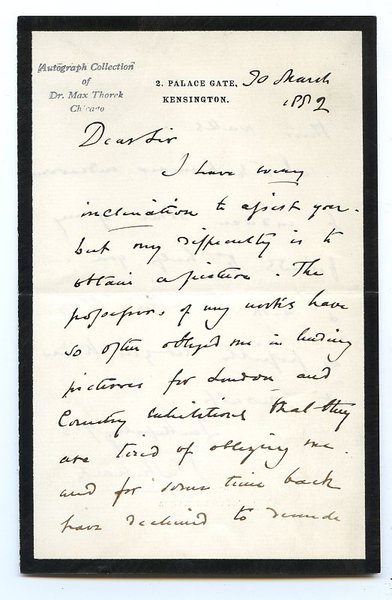 Autograph Collection
of
Dr. Max Thorek
Chicago
2. PALACE GATE,
KENSINGTON.
30 March
1882
Dear Sir
I have every
inclination to assist you -
but my difficulty is to
obtain a picture. The
possessors of my works have
so often obliged me in lending
pictures for London and
Country Exhibitions that they
are tired of obliging me.
and for some time back
have declined to